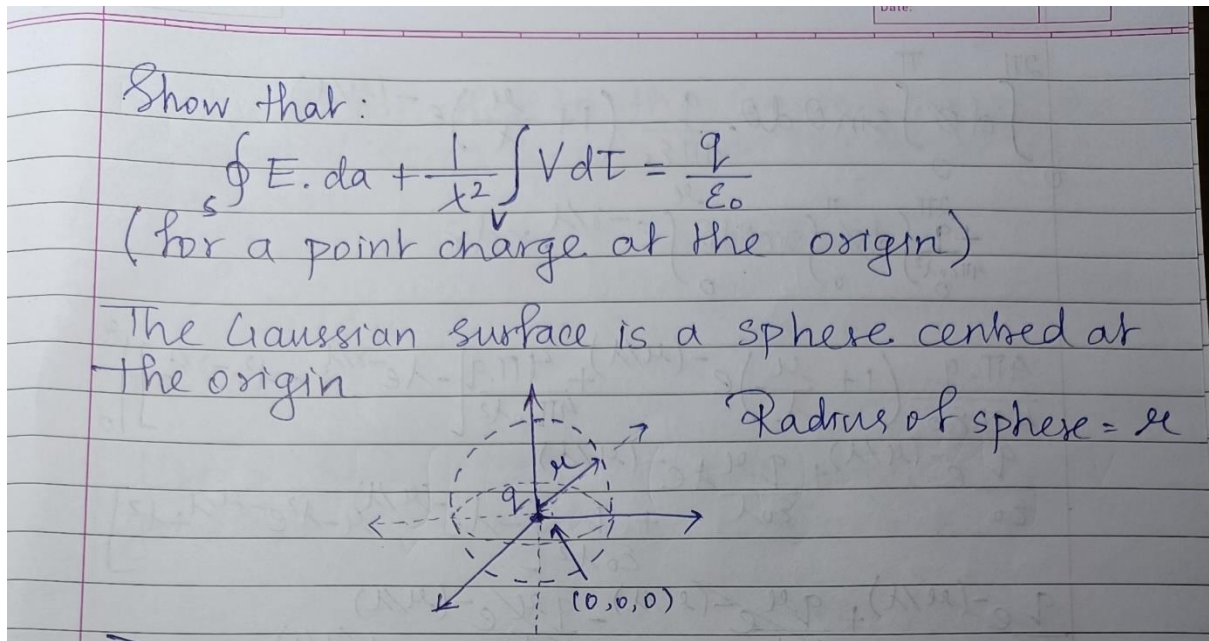 Date:
Show that:
∮_S E. da + 1/λ² ∫_V V dτ = q/ε₀
(for a point charge at the origin)
The Gaussian surface is a sphere centred at
the origin
Radius of sphere = r
r
q
(0,0,0)